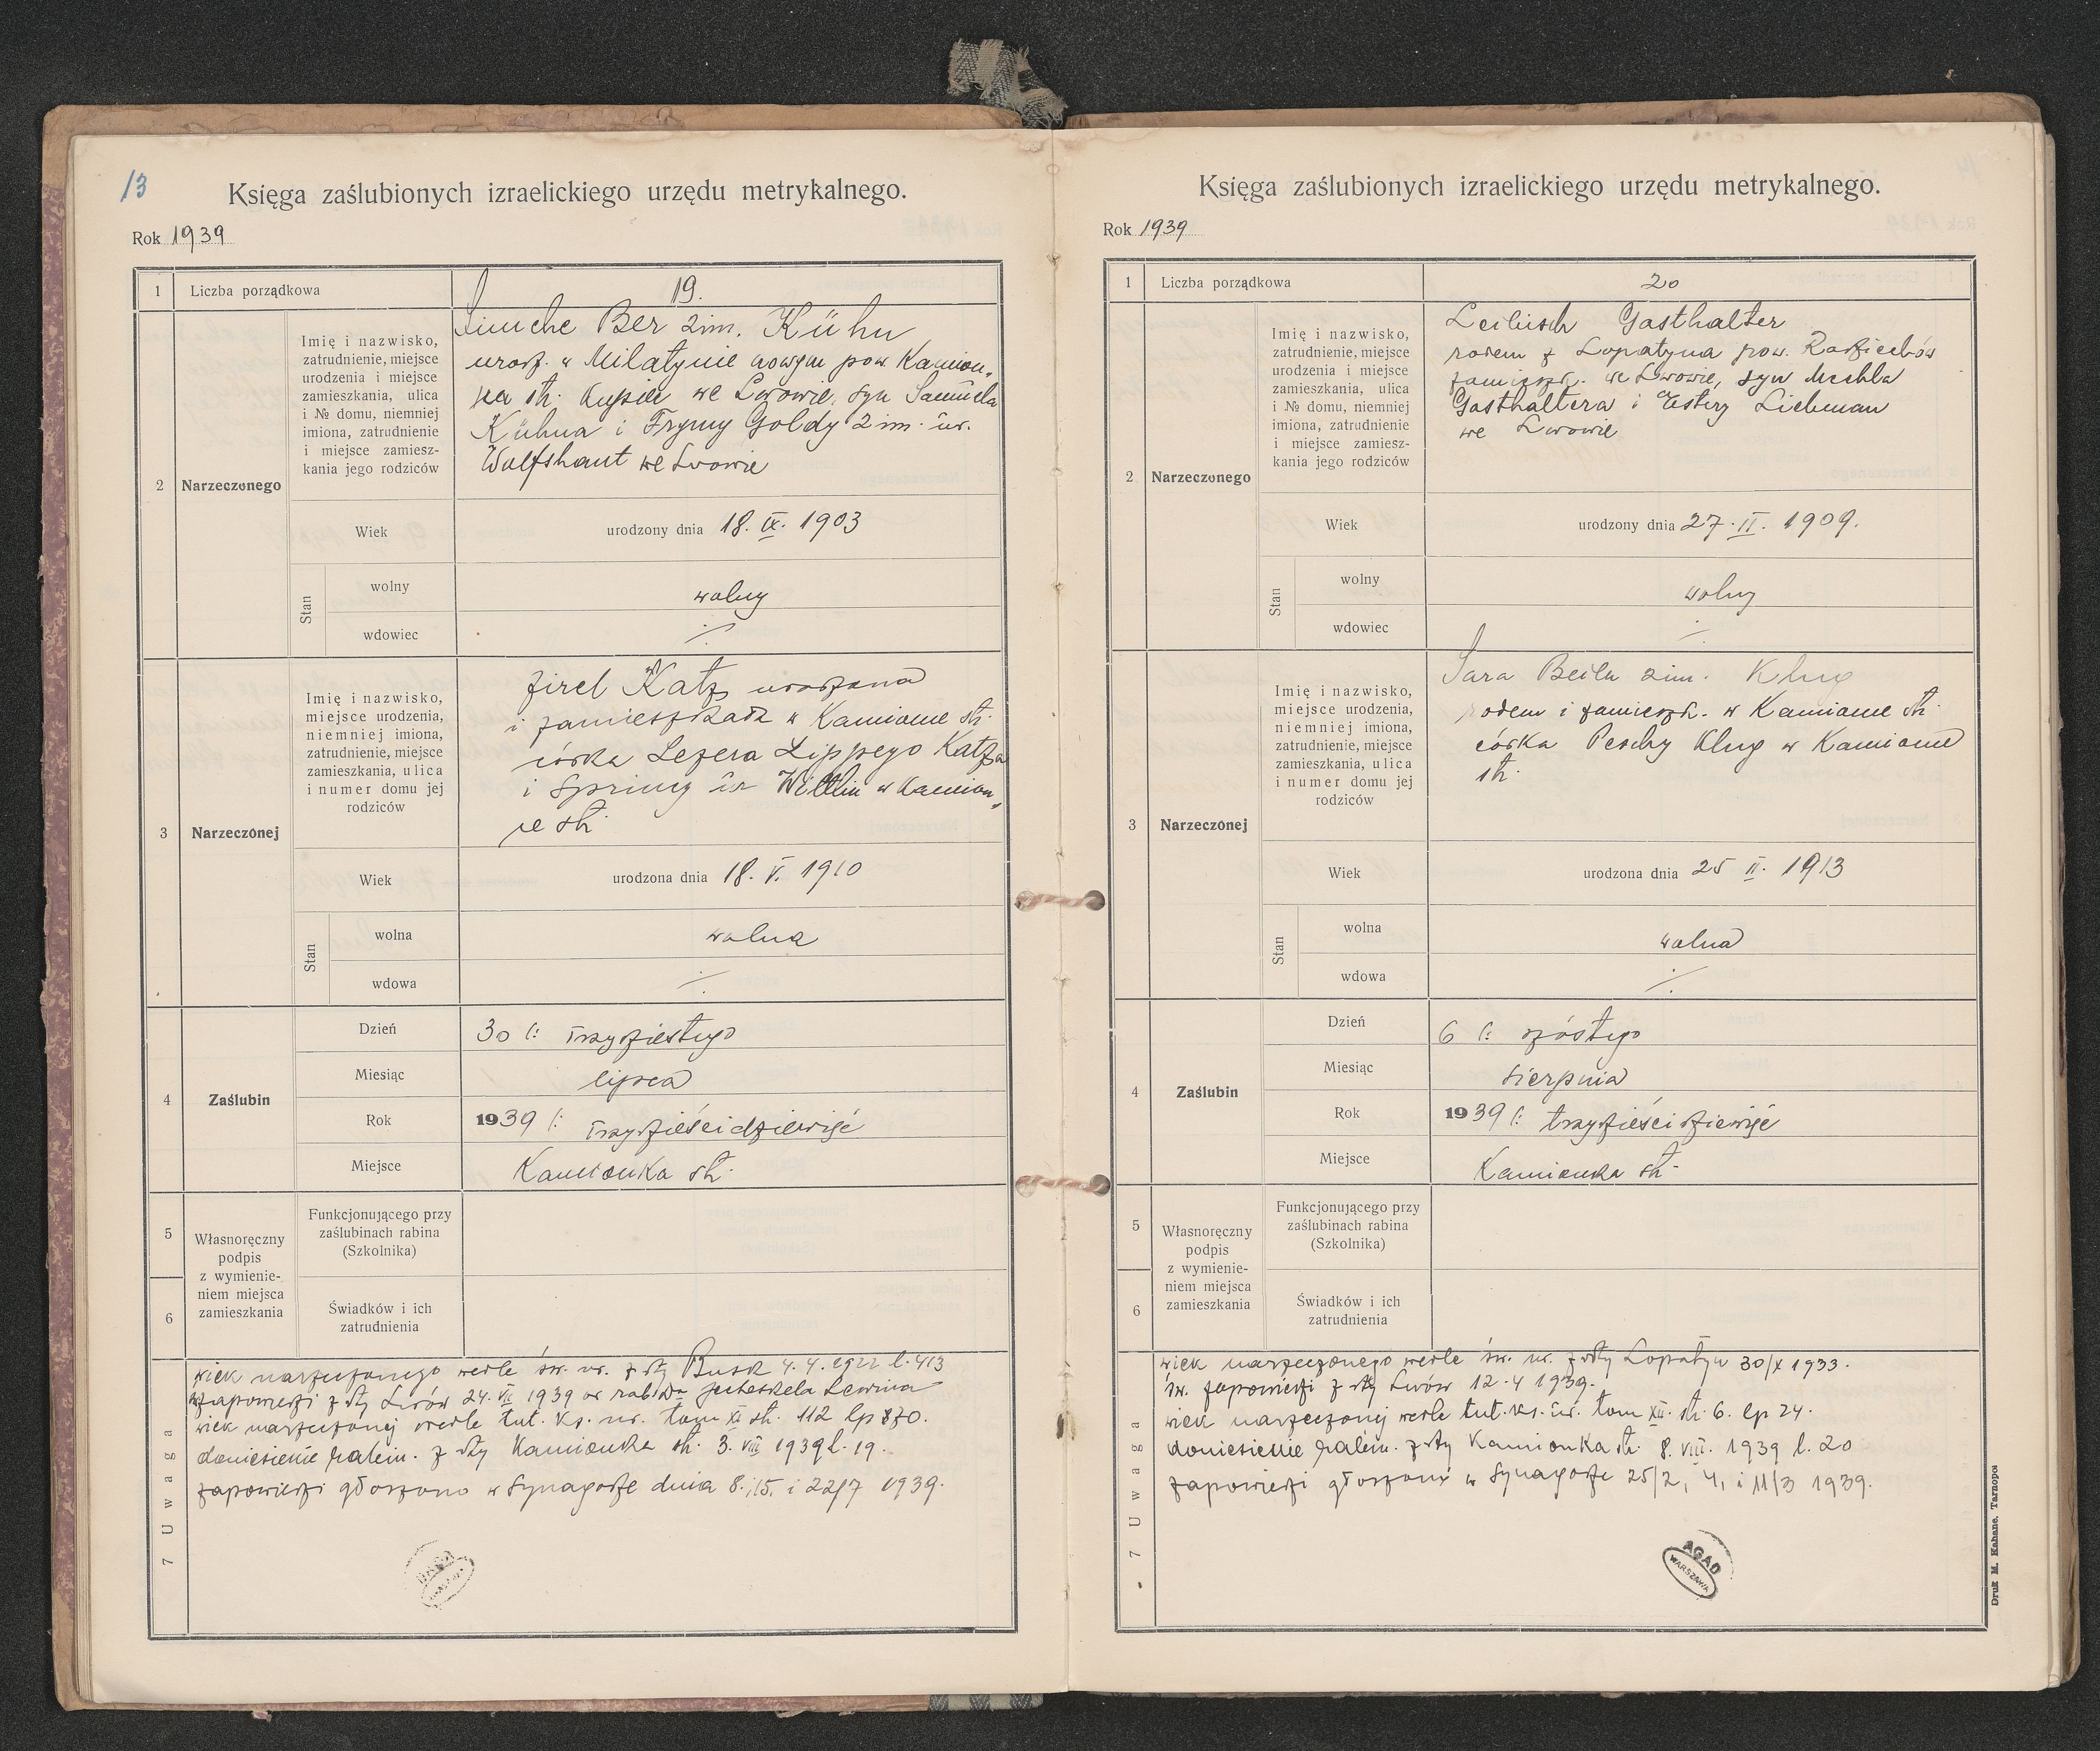 13
Księga zaślubionych izraelickiego urzędu metrykalnego.
Rok 1939
1 Liczba porządkowa 19.
2 Narzeczonego
Imię i nazwisko,
zatrudnienie, miejsce
urodzenia i miejsce
zamieszkania, ulica
i № domu, niemniej
imiona, zatrudnienie
i miejsce zamiesz-
kania jego rodziców
Simche Ber 2 im. Kühn
urodz. w Milatynie nowym pow. Kamion-
ka st. kupiec we Lwowie, syn Samuela
Kühna i Frymy Goldy 2 im. ur.
Wolfshaut we Lwowie
Wiek urodzony dnia 18. IX. 1903
Stan
wolny wolny
wdowiec ./.
3 Narzeczonej
Imię i nazwisko,
miejsce urodzenia,
niemniej imiona,
zatrudnienie, miejsce
zamieszkania, ulica
i numer domu jej
rodziców
Zirel Katz urodzona
i zamieszkała w Kamionce st.
córka Lezera Lippego Katza
i Sprincy ur Wittlin w Kamion-
ce st.
Wiek urodzona dnia 18. V. 1910
Stan
wolna wolna
wdowa ./.
4 Zaślubin
Dzień 30 /: trzydziestego
Miesiąc lipca
Rok 1939 /: trzydzieści dziewięć
Miejsce Kamionka st.
5
6
Własnoręczny
podpis
z wymienie-
niem miejsca
zamieszkania
Funkcjonującego przy
zaślubinach rabina
(Szkolnika)
Świadków i ich
zatrudnienia
7 Uwaga
wiek narzeczonego wedle św. ur. z dty Busk 4. 4. 1922 l. 413
zapowiedzi z dty Lwów 24. VII 1939 Lewina
wiek narzeczonej wedle tut. ks. ur. tom XI st. 112 lp 870.
doniesienie z dty Kamionka st. 3. VIII 1939 l. 19.
zapowiedzi głoszono w Synagodze dnia 8. i 15. i 22/7 1939.
Księga zaślubionych izraelickiego urzędu metrykalnego.
Rok 1939
1 Liczba porządkowa 20
2 Narzeczonego
Imię i nazwisko,
zatrudnienie, miejsce
urodzenia i miejsce
zamieszkania, ulica
i № domu, niemniej
imiona, zatrudnienie
i miejsce zamiesz-
kania jego rodziców
Leibisch Gasthalter
rodem z Łopatyna pow. Radziechów
zamieszk. we Lwowie, syn Mechla
Gasthaltera i Estery Liebman
we Lwowie
Wiek urodzony dnia 27. II. 1909.
Stan
wolny wolny
wdowiec ./.
3 Narzeczonej
Imię i nazwisko,
miejsce urodzenia,
niemniej imiona,
zatrudnienie, miejsce
zamieszkania, ulica
i numer domu jej
rodziców
Sara Beila 2 im. Klug
rodem i zamieszk. w Kamionce st.
córka Peschy Klug w Kamionce
st.
Wiek urodzona dnia 25 II. 1913
Stan
wolna wolna
wdowa ./.
4 Zaślubin
Dzień 6 /: szóstego
Miesiąc sierpnia
Rok 1939 /: trzydzieści dziewięć
Miejsce Kamionka st.
5
6
Własnoręczny
podpis
z wymienie-
niem miejsca
zamieszkania
Funkcjonującego przy
zaślubinach rabina
(Szkolnika)
Świadków i ich
zatrudnienia
7 Uwaga
wiek narzeczonego wedle św. ur. z dty Łopatyn 30/X 1933.
św. zapowiedzi z dty Lwów 12. 4 1939.
wiek narzeczonej wedle tut. ks. ur. tom XII. st. 6. lp 24.
doniesienie z dty Kamionka st. 8. VIII. 1939 l. 20
zapowiedzi głoszono w Synagodze 25/2, 4, i 11/3 1939.
AGAD
WARSZAWA
Druk M. Kahane, Tarnopol